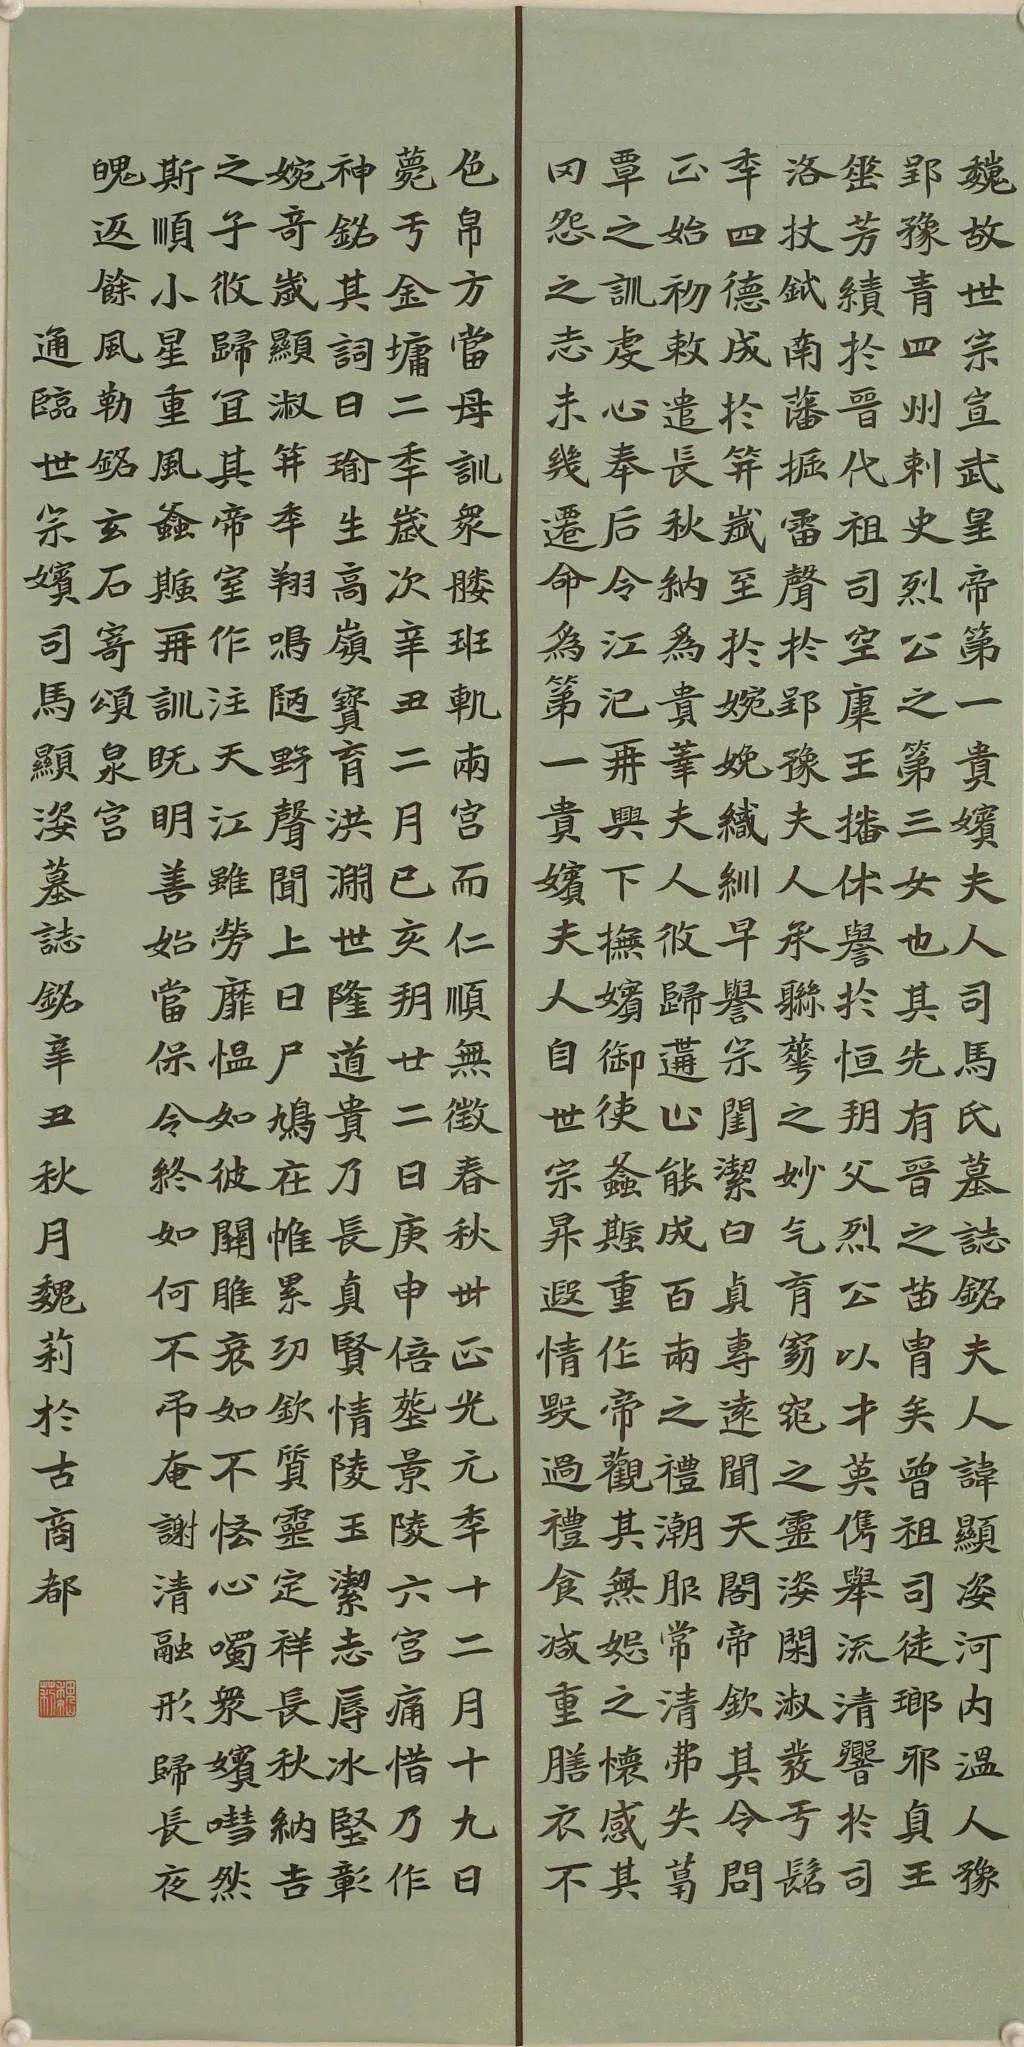 魏故世宗宣武皇帝第一貴嬪夫人司馬氏墓誌銘夫人諱顯姿河內溫人豫
郢豫青四州刺史烈公之第三女也其先有晉之苗胄矣曾祖司徒瑯邪貞王
垂芳績於晉代祖司空康王播休譽於恒朔父烈公以才英儁舉流清響於司
洛杖鉞南藩振雷聲於郢豫夫人承聯華之妙气育窈窕之靈姿閑淑發于髫
年四德成於笄歲至於婉娩織紃早譽宗閨潔白貞專遠聞天閣帝欽其令問
正始初敕遣長秋納為貴華夫人攸歸遘止能成百兩之禮潮服常清弗失葛
覃之訓虔心奉后令江汜再興下撫嬪御使螽斯重作帝觀其無妒之懷感其
罔怨之志未幾遷命為第一貴嬪夫人自世宗昇遐情毀過禮食減重膳衣不
色帛方當母訓眾媵班軌兩宮而仁順無徵春秋卅正光元年十二月十九日
薨于金墉二年歲次辛丑二月己亥朔廿二日庚申倍葬景陵六宮痛惜乃作
神銘其詞曰瑜生高嶺寶育洪淵世隆道貴乃長貞賢情陵玉潔志辱冰堅彰
婉奇歲顯淑笄年翔鳴陋野聲聞上日尸鳩在帷累功欽質靈定祥長秋納吉
之子攸歸宜其帝室作注天江雖勞靡慍如彼關雎哀如不悋心噣眾嬪嘒然
斯順小星重風螽斯再訓既明善始當保令終如何不弔奄謝清融形歸長夜
魄返餘風勒銘玄石寄頌泉宮
通臨世宗嬪司馬顯姿墓誌銘辛丑秋月魏莉於古商都